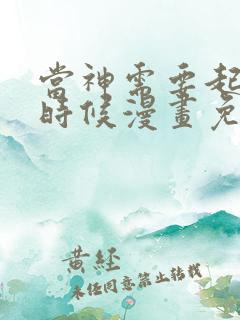 當神需要起
時候漫畫免
黃經
未經同意禁止轉載